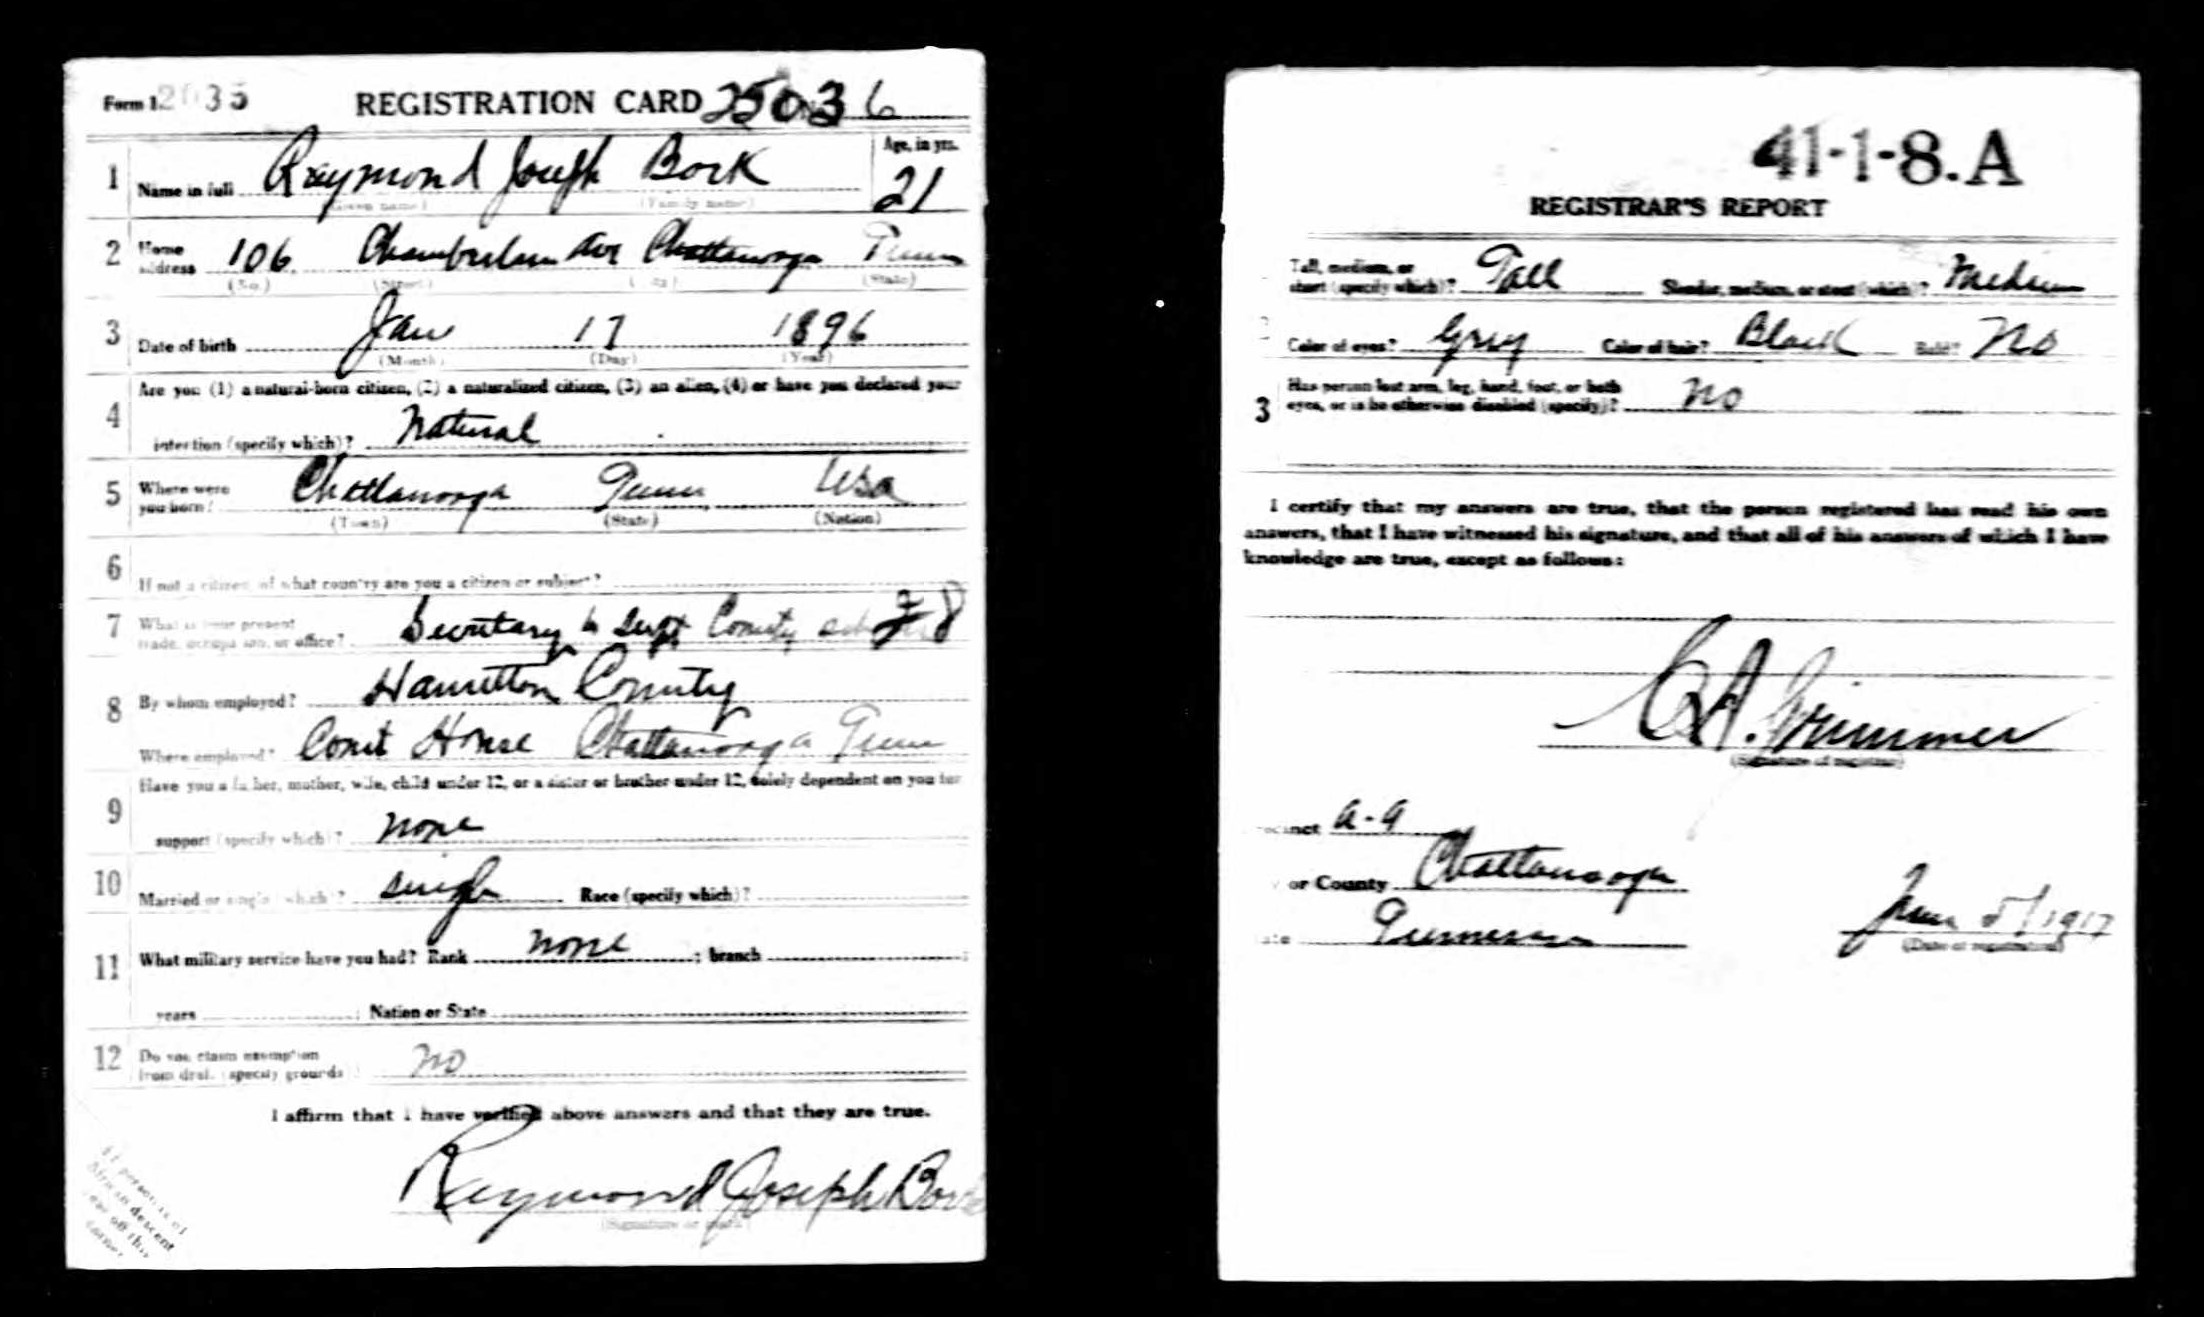 Form 1 2035 REGISTRATION CARD 25036
1 Name in full Raymond Joseph Bork Age, in yrs. 21
(Given name) (Family name)
2 Home address 106 Chamberlain Ave Chattanooga Tenn
(No.) (Street) (City) (State)
3 Date of birth Jan 17 1896
(Month) (Day) (Year)
4 Are you (1) a natural-born citizen, (2) a naturalized citizen, (3) an alien, (4) or have you declared your
intention (specify which)? Natural
5 Where were you born? Chattanooga Tenn Usa
(Town) (State) (Nation)
6 If not a citizen, of what country are you a citizen or subject?
7 What is your present
trade, occupation, or office? Secretary to Supt County 28
8 By whom employed? Hamilton County
Where employed? Court House Chattanooga Tenn
9 Have you a father, mother, wife, child under 12, or a sister or brother under 12, solely dependent on you for
support (specify which)? none
10 Married or single (which)? single Race (specify which)?
11 What military service have you had? Rank none ; branch ;
years ; Nation or State
12 Do you claim exemption
from draft (specify grounds)? no
I affirm that I have verified above answers and that they are true.
Raymond Joseph Bork
(Signature or mark)
If person is of
African descent
tear off this
corner
41-1-8.A
REGISTRAR'S REPORT
Tall, medium, or
short (specify which)? Tall Slender, medium, or stout (which)? Medium
2 Color of eyes? Grey Color of hair? Black Bald? No
3 Has person lost arm, leg, hand, foot, or both
eyes, or is he otherwise disabled (specify)? No
I certify that my answers are true, that the person registered has read his own
answers, that I have witnessed his signature, and that all of his answers of which I have
knowledge are true, except as follows:
(Signature of registrar)
cinct a-9
or County Chattanooga
Tennessee June 5/1917
(Date of registration)